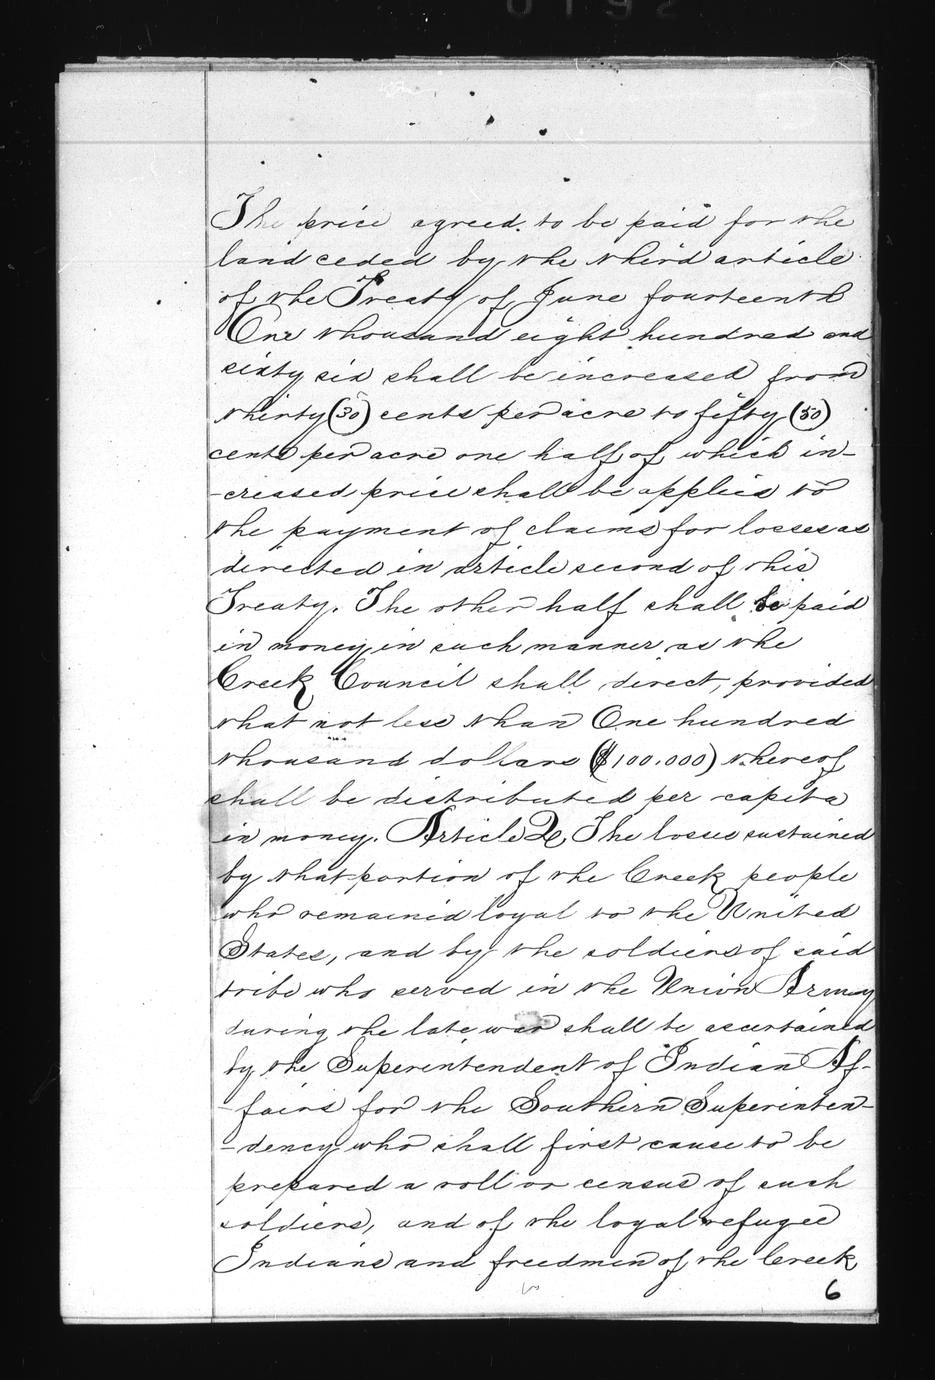 0192
The price agreed to be paid for the
land ceded by the third article
of the Treaty of June fourteenth
One thousand eight hundred and
sixty six shall be increased from
thirty (30) cents per acre to fifty (50)
cents per acre one half of which in-
-creased price shall be applied to
the payment of claims for losses as
directed in article second of this
Treaty. The other half shall be paid
in money in such manner as the
Creek Council shall direct, provided
that not less than One hundred
thousand dollars ($100.000) thereof
shall be distributed per capita
in money. Article 2, The losses sustained
by that portion of the Creek people
who remained loyal to the United
States, and by the soldiers of said
tribe who served in the Union Army
during the late war shall be ascertained
by the Superintendent of Indian Af-
-fairs for the Southern Superinten-
-dency who shall first cause to be
prepared a roll or census of such
soldiers, and of the loyal refugee
Indians and freedmen of the Creek
6